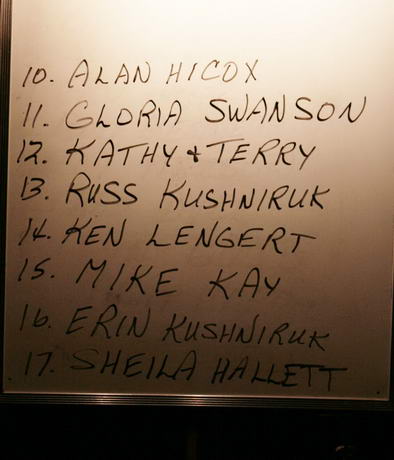 10. ALAN HICOX
11. GLORIA SWANSON
12. KATHY & TERRY
13. RUSS KUSHNIRUK
14. KEN LENGERT
15. MIKE KAY
16. ERIN KUSHNIRUK
17. SHEILA HALLETT